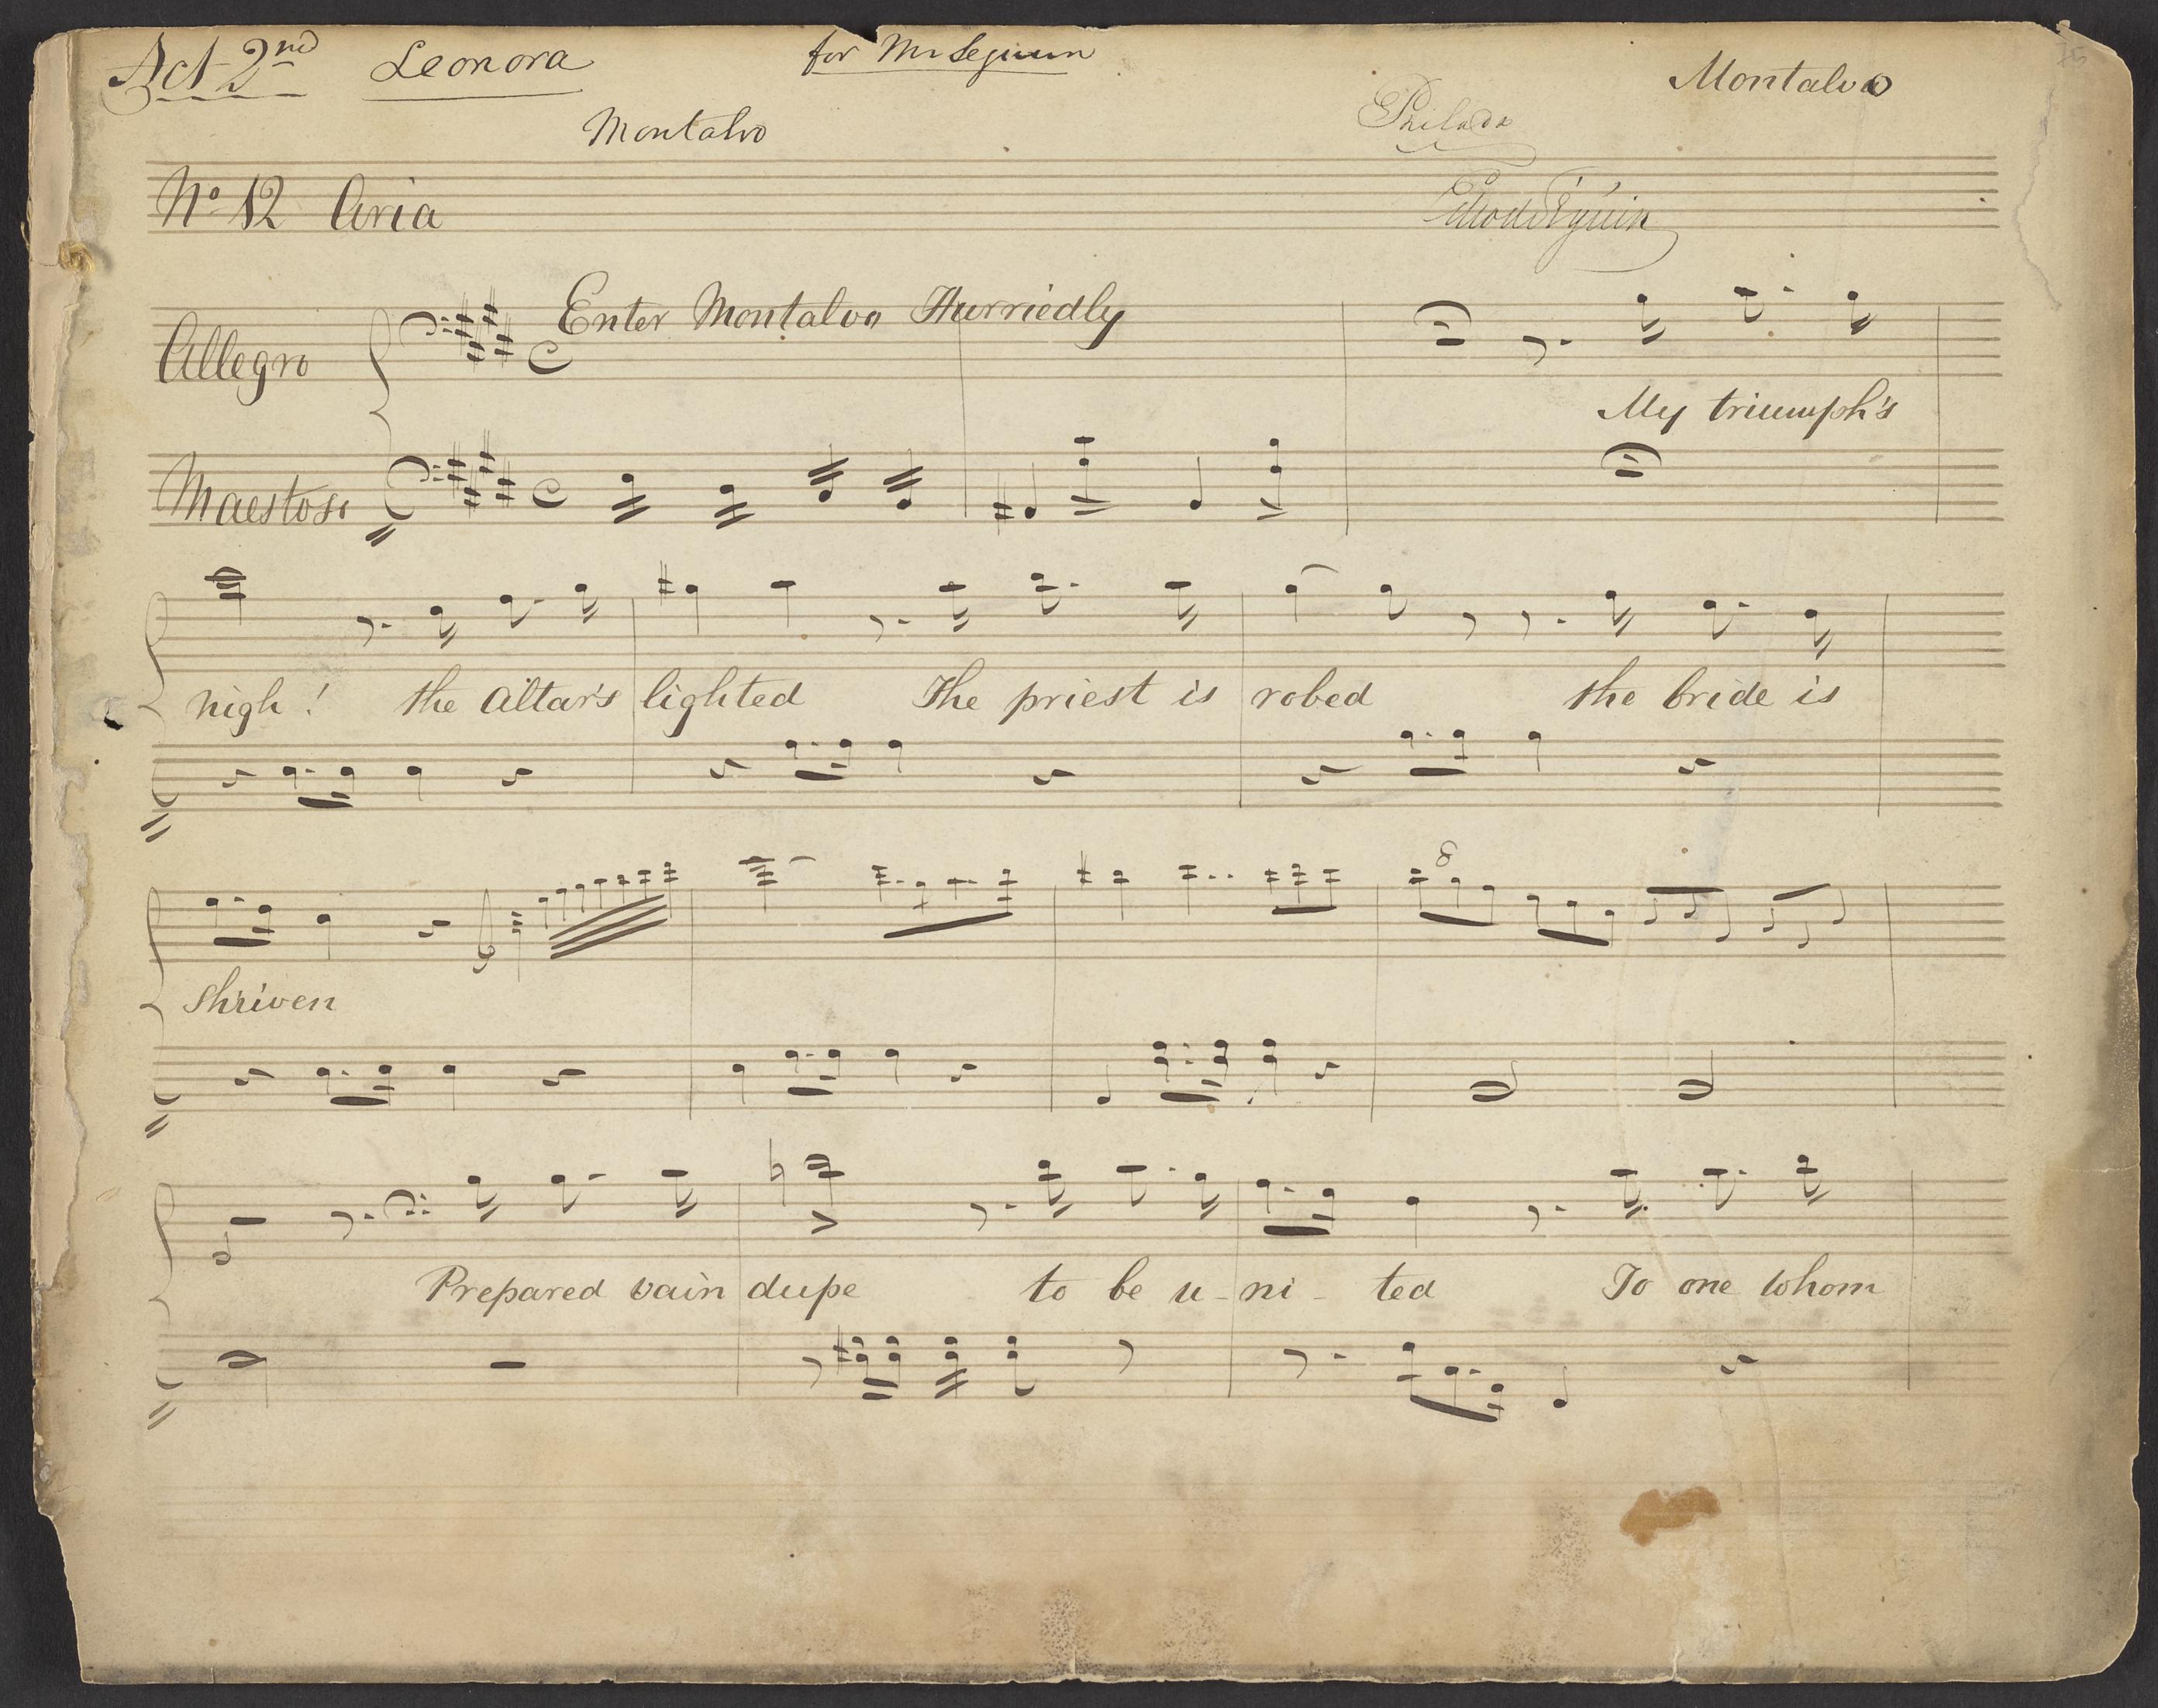 Act 2nd Leonora for Mr Seguin Montalvo
Montalvo Philada
No 12 Aria Edwd Seguin
Allegro Enter Montalvo Hurriedly
My triumph's
Maestoso
nigh! the altar's lighted The priest is robed the bride is
8
Shriven
Prepared vain dupe to be u - ni - ted To one whom